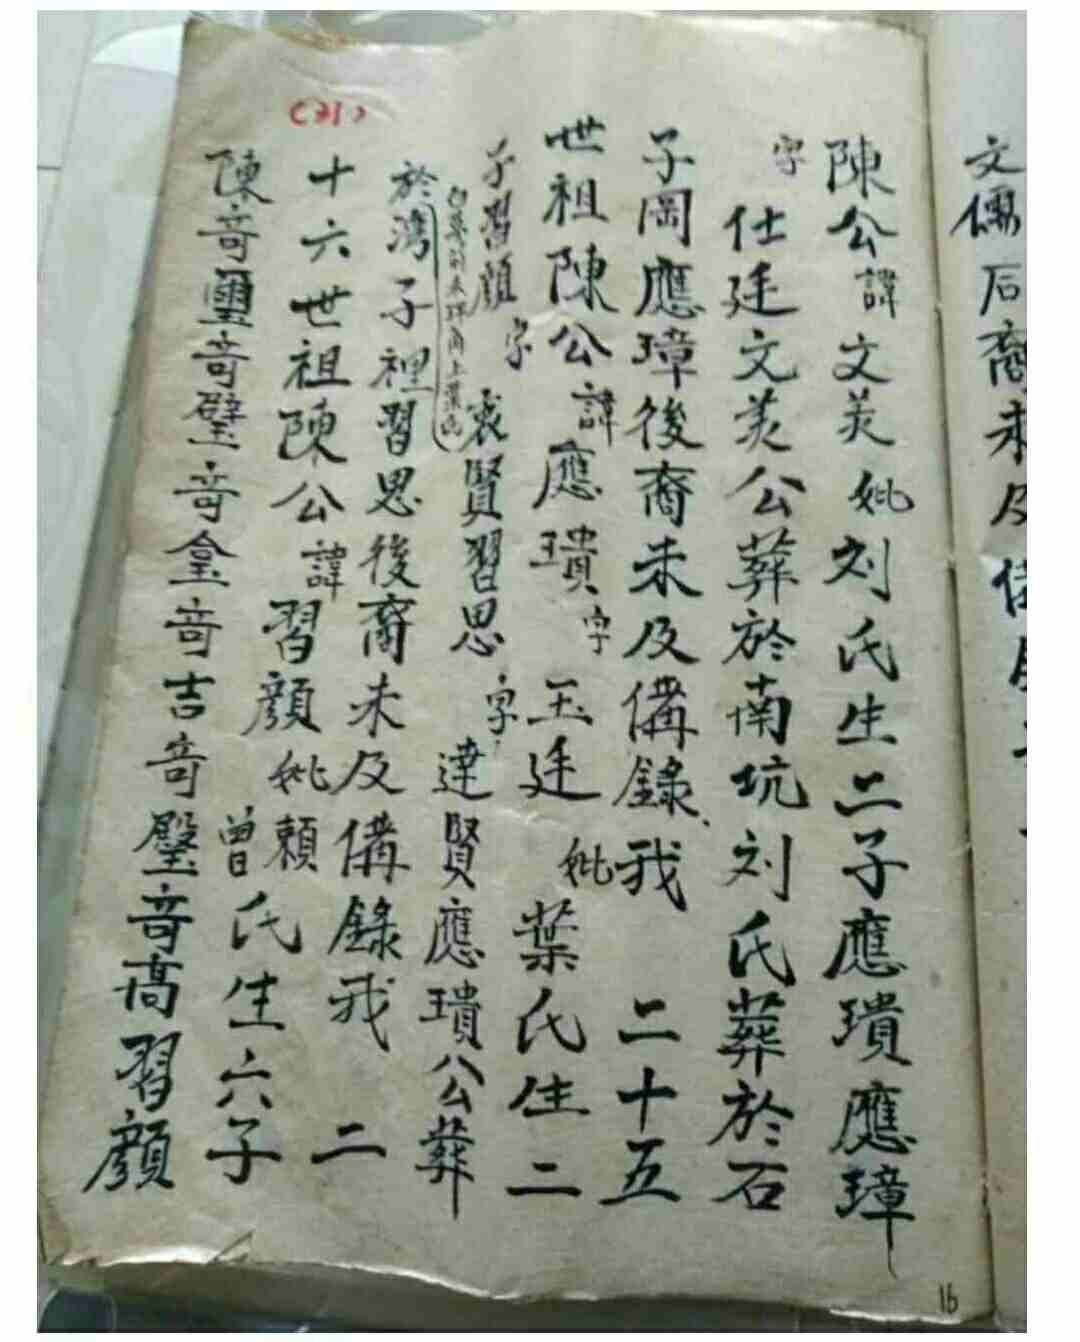 文儒后裔未及備
陳公諱文美妣刘氏生二子應璝應璋
字仕廷文美公葬於南坑刘氏葬於石
子岡應璋後裔未及備錄、我二十五
世祖陳公諱應璝字玉廷妣葉氏生二
子習顔字衷賢習思字達賢應璝公葬
於湾子裡習思後裔未及備錄我二
十六世祖陳公諱習顔妣賴曾氏生六子
陳竒璽竒璧竒竒吉竒竒高習顔
(31)
16